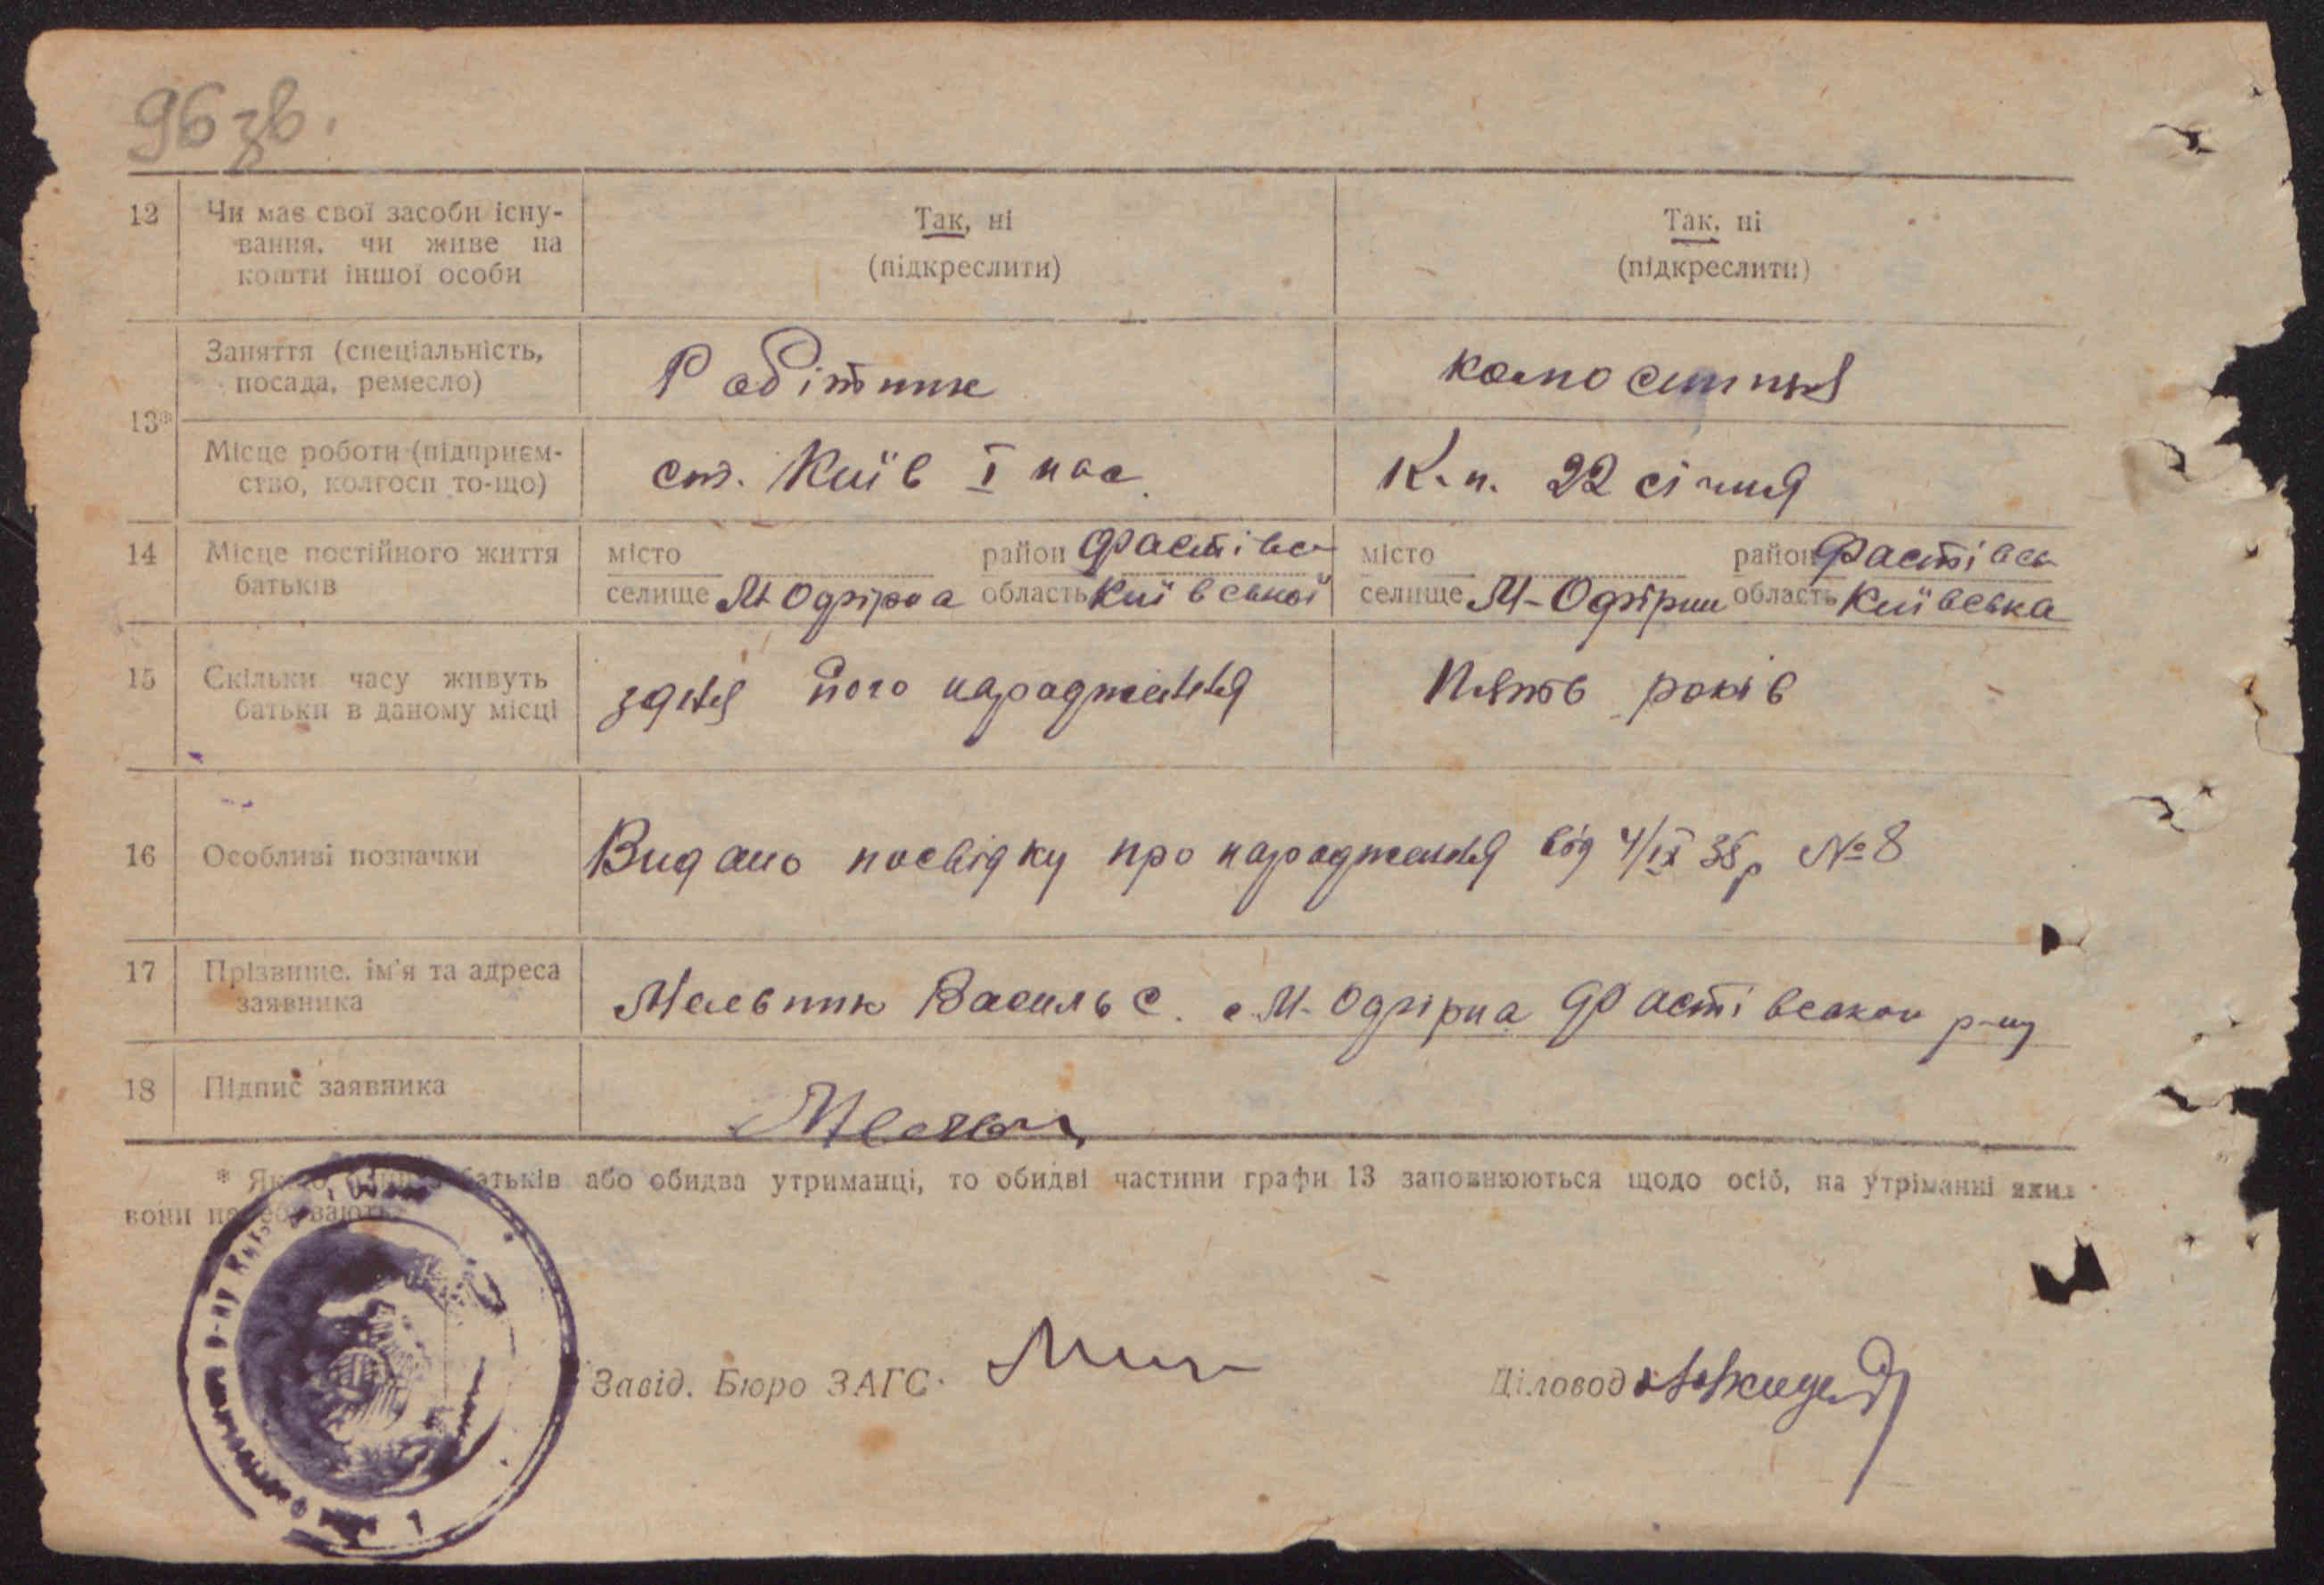 96 зв.
12 Чи має свої засоби існу-
вання, чи живе на
кошти іншої особи
Так, ні
(підкреслити)
Так, ні
(підкреслити)
13*
Заняття (спеціальність,
посада, ремесло)
Робітник
колгоспниця
Місце роботи (підприєм-
ство, колгосп то-що)
ст. Київ І пас.
К.п. 22 січня
14 Місце постійного життя
батьків
місто район Фастівс
селище М Офірна область Київської
місто район Фастівсь
селище М-Офірни область Київська
15 Скільки часу живуть
батьки в даному місці
здня його народження
Пять років
16 Особливі позначки
Видано посвідку про народження від 4/IX 38р №8
17 Прізвище, ім'я та адреса
заявника
Мельник Василь С. с. М-Офірна Фастівсакои р-ну
18 Підпис заявника
* Якщо батьків або обидва утриманці, то обидві частини графи 13 заповнюються щодо осіб, на утріманні яких
вони перебувають.
р-ну Київ
Завід. Бюро ЗАГС
Діловод